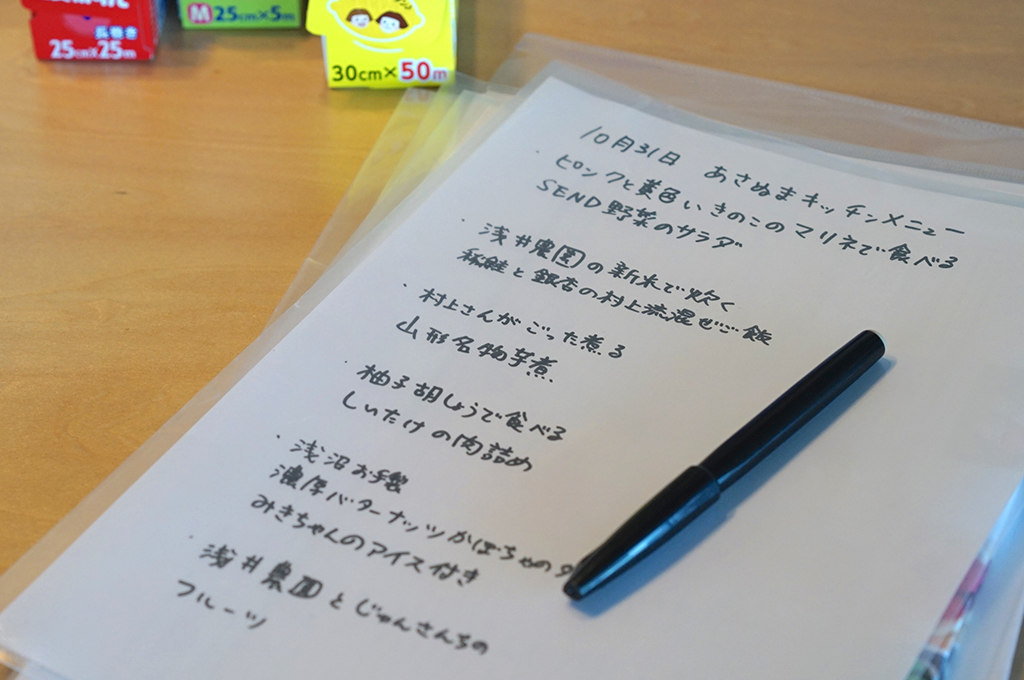 長巻き
25cm×25m
M 25cm×5m
30cm×50m
10月31日 あさぬまキッチンメニュー
・ピンクと黄色いきのこのマリネで食べる
SEND野菜のサラダ
・浅井農園の新米で炊く
秋鮭と銀杏の村上流混ぜご飯
・村上さんがごった煮る
山形名物芋煮
・柚子胡しょうで食べる
しいたけの肉詰め
・浅沼お手製
濃厚バターナッツかぼちゃの
みきちゃんのアイス付き
・浅井農園とじゅんさんちの
フルーツ